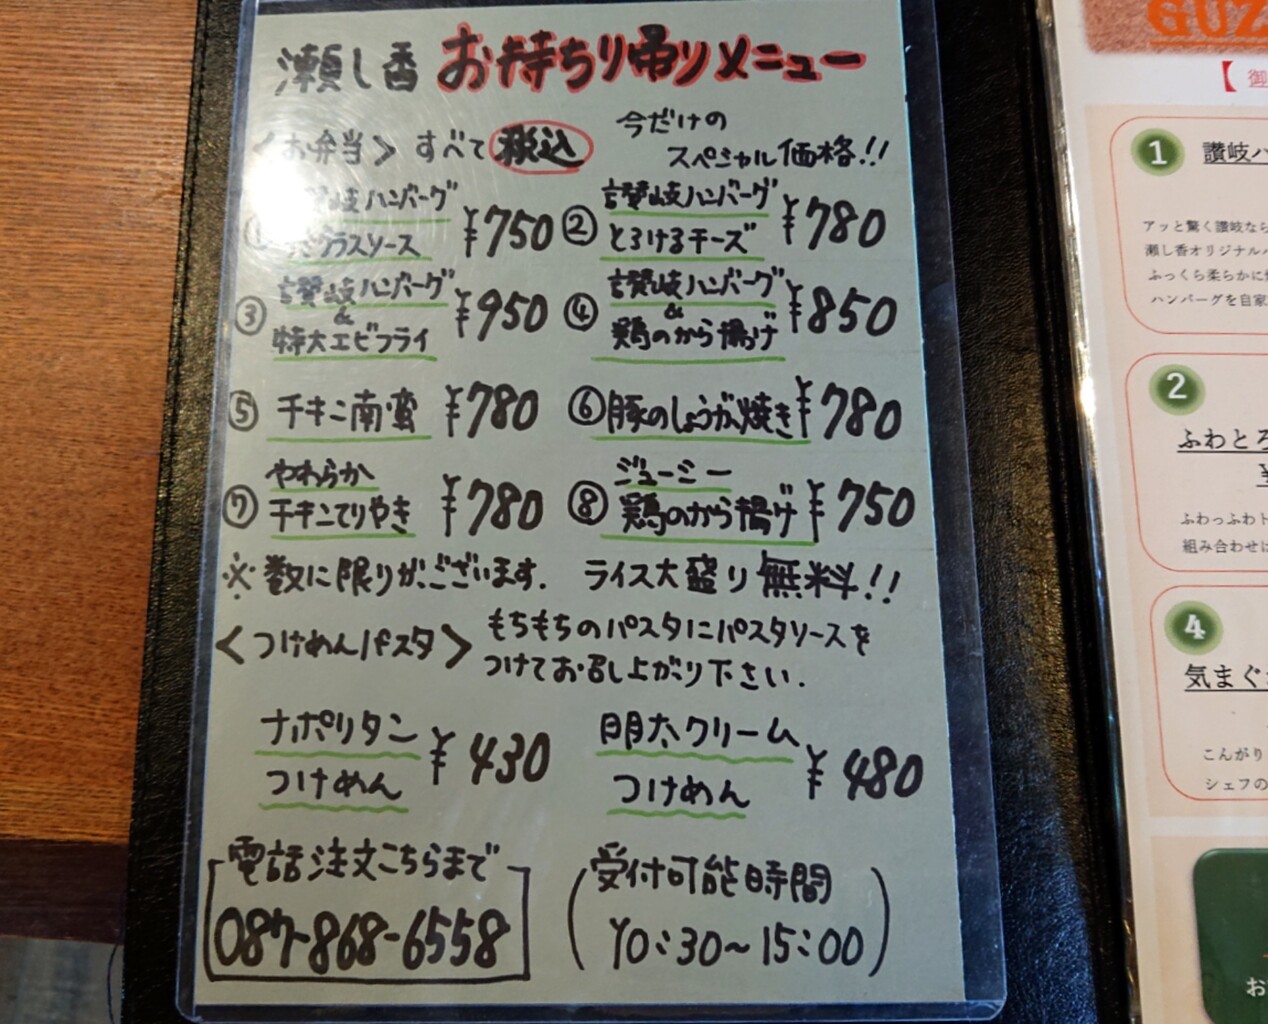 瀬し香 お持ちり帰りメニュー
<お弁当> すべて 税込
今だけの
スペシャル価格!!
岐ハンバーグ
グラスソース ¥750
② 讃岐ハンバーグ
とろけるチーズ ¥780
③ 讃岐ハンバーグ
&
特大エビフライ ¥950
④ 讃岐ハンバーグ
&
鶏のから揚げ ¥850
⑤ チキン南蛮 ¥780
⑥ 豚のしょうが焼き ¥780
⑦ やわらか
チキンてりやき ¥780
⑧ ジューシー
鶏のから揚げ ¥750
※数に限りがございます. ライス大盛り無料!!
<つけめんパスタ>
もちもちのパスタにパスタソースを
つけてお召し上がり下さい.
ナポリタン
つけめん ¥430
明太クリーム
つけめん ¥480
電話注文こちらまで
087-868-6558
(受付可能時間
10:30~15:00)
GUZ
【御
1 讃岐ハ
アッと驚く讃岐なら
瀬し香オリジナルハ
ふっくら柔らかに
ハンバーグを自家
2
ふわとろ
ふわっふわト
組み合わせは
4
気まぐ
こんがり
シェフの
お